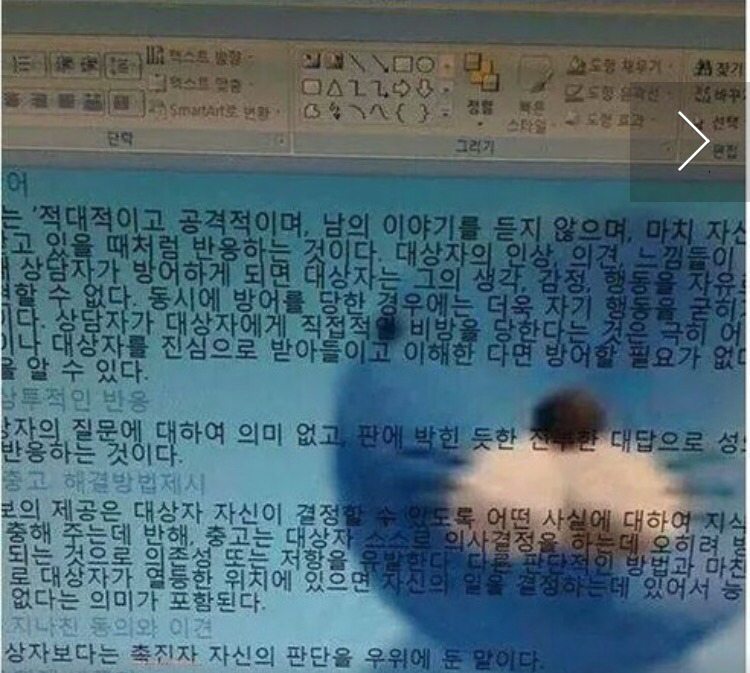 텍스트 방향
텍스트 맞춤
SmartArt로 변환
단락
정렬
빠른 스타일
그리기
도형 채우기
도형 윤곽선
도형 효과
찾기
바꾸
선택
편집
어
는 '적대적이고 공격적이며, 남의 이야기를 듣지 않으며, 마치 자신
고 있을 때처럼 반응하는 것이다. 대상자의 인상, 의견, 느낌들이
상담자가 방어하게 되면 대상자는 그의 생각, 감정, 행동을 자유
할 수 없다. 동시에 방어를 당한 경우에는 더욱 자기 행동을 굳히
이다. 상담자가 대상자에게 직접적인 비방을 당한다는 것은 극히 어
이나 대상자를 진심으로 받아들이고 이해한 다면 방어할 필요가 없다
을 알 수 있다.
상투적인 반응
상자의 질문에 대하여 의미 없고, 판에 박힌 듯한 진부한 대답으로 성
반응하는 것이다.
충고, 해결방법제시
보의 제공은 대상자 자신이 결정할 수 있도록 어떤 사실에 대하여 지식
충해 주는데 반해, 충고는 대상자 스스로 의사결정을 하는데 오히려 방
되는 것으로 의존성 또는 저항을 유발한다. 다른 판단적인 방법과 마찬
로 대상자가 열등한 위치에 있으면 자신의 일을 결정하는데 있어서 능
없다는 의미가 포함된다.
지나친 동의와 이견
상자보다는 촉진자 자신의 판단을 우위에 둔 말이다.